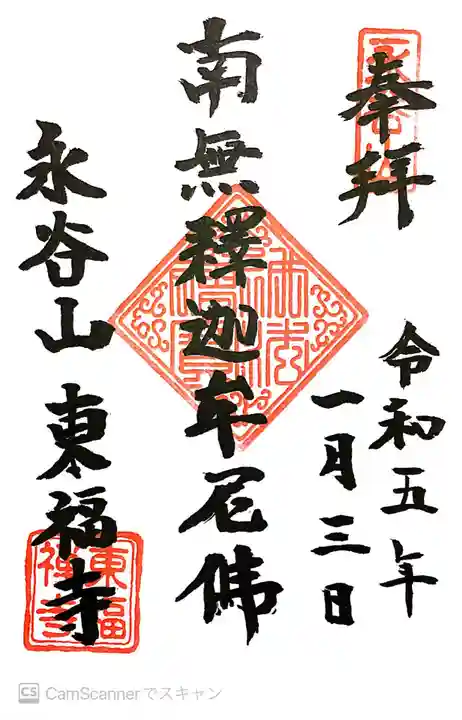 奉拝
令和五年
一月三日
南無釋迦牟尼佛
永谷山 東福寺
東福禅寺
CS CamScannerでスキャン